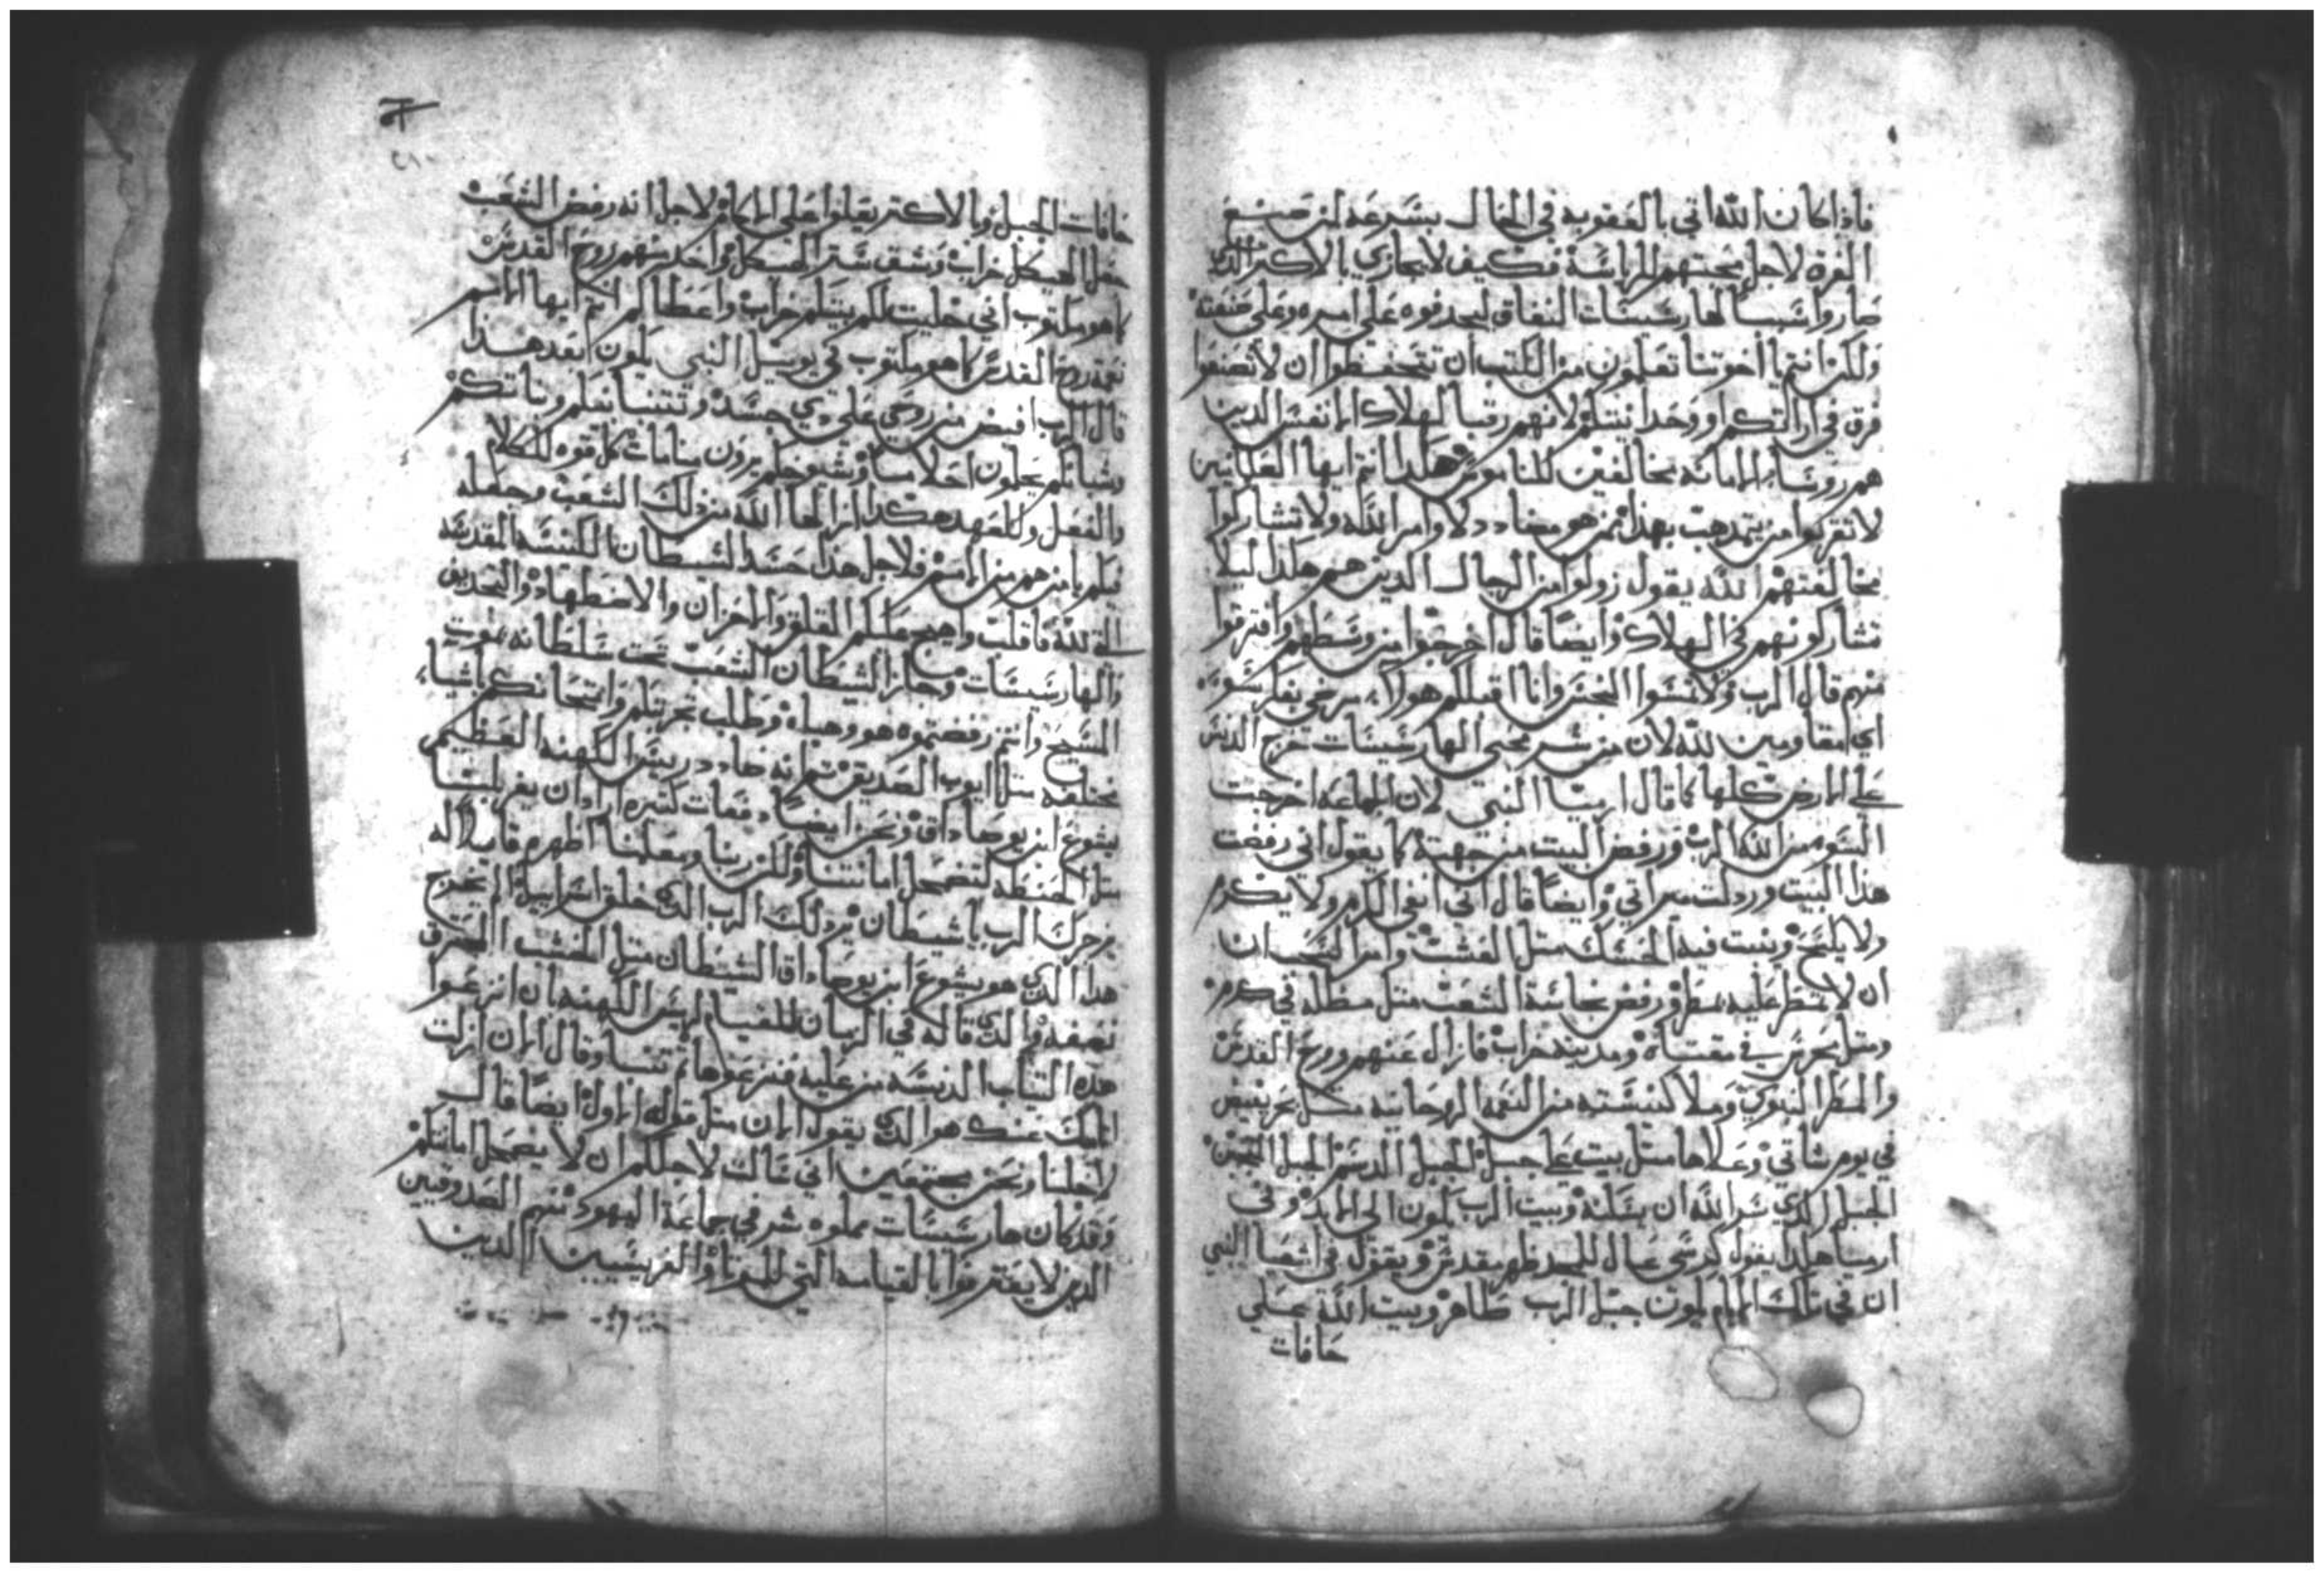 فاذا كان الله اتى بالعقوبه في الحال بسرعه لمن صنع
الفرقه لاجل محبتهم للرياسة فكيف لا يجازي بالاكتر الدين
صاروا سببا لهارسيسات النفاق ليجدفوه على اسره وعلى صنعته
ولكن انتم يا اخوتنا تعلمون من الكتب ان تتحفظوا ان لا تصنعوا
فرق في ارايكم او وحدا نيتكم لانهم رقبا الهلاك الانفس الدين
هم روسا الامانه مخالفين للناموس هكدا انتم ايها العلمانيين
لا تقربوا من يتمدهب بهدا ممن هو مضادد لاوامر الله ولا تشاركوا
مخالفتهم الله يقول زولوا من الرجال الدين هم هكدا ليلا
تشاركونهم في الهلاك وايضا قال اخرجوا من وسطهم وافترقوا
منهم قال الرب ولا تمسوا النجس وانا اقبلكم هولاء
اي مقاومين لله لان من شر محبي الهارسيسات خرج الدنس
على الارض كلها كما قال ارميا النبي لان الجماعه اخرجت
السو من الله الرب ورفض البيت من جهته كما يقول اني رفضت
هدا البيت وردلت ميراثي وايضا قال اني انفي الكرم ولا يكرم
ولا يلقح وينبت فيه الحسك متل العشب وامر السحب ان
ان لا تمطر عليه مطر ورفض نجاسة الشعب متل مظله في كرم
ومتل محرس في مقتاه ومدينه خراب فازال عنهم روح القدس
والمطر النبوي وملا كنيسته من النعمه الروحانيه متل بحر يفيض
في يوم شاتي وعلاها متل بيت على جبل الجبل الدسم الجبل الجبن
الجبل الدي سر الله ان يسكنه وبيت الرب يكون الى الابد وفي
ارميا هكدا يقول كرسي عال للمجد طهر مقدس ويقول في اشعيا النبي
ان في تلك الايام يكون جبل الرب ظاهر وبيت الله على
حافات
٢١٠
حافات الجبل وبالاكتر يعلوا على الاكام لاجل انه رفض الشعب
جعل الهيكل خراب وشق ستر الهيكل واخد منهم روح القدس
كما هو مكتوب اني خليت لكم بيتكم خراب واعطاكم انتم ايها الامم
نعمة روح القدس كما هو مكتوب في يويل النبي يكون بعد هدا
قال الرب افيض من روحي على دي جسد وتتنبا بنيكم وبناتكم
وشبانكم يحلمون احلاما وشيوخكم يرون منامات كل قوه للكلام
والفعل وللعهد هكدا ازالها الله من دلك الشعب وجعله
فيكم يا من هم من الامم فلاجل هدا حسد الشيطان الكنيسه المقدسه
التي لله فاقلب واهيج عليكم القلق والاحزان والاضطهاد والتجديف
والهارسيسات وحاز الشيطان الشعب تحت سلطانه بموت
المسيح وانتم رفضتموه هو وهباه وطلب تجربتكم وامتحانكم باشياء
مختلفه متل ايوب الصديق تم انه ضادد ريس الكهنه العظيم
يشوع ابن يوصاداق ونحن ايضا دفعات كتيره اراد ان يغربلنا
متل الحنطه لتضمحل امانتنا ولكن ربنا ومعلمنا اظهره قايلا له
يزجرك الرب يا شيطان يزجرك الرب الدي خلق اسراييل الم يخرج
هدا الدي هو يشوع ابن يوصاداق الشيطان متل الخشب المحترق
نصفه والدي قاله في الزمان للقيام لريس الكهنه بان انزعوا
هده التياب الدنسه من عليه فنزعوها تم تنبا وقال الان ازلت
اتامك عنك هو الدي يقول الان متل قوله الاول ايضا قال
لاجلنا ونحن مجتمعين اني سالت لاجلكم ان لا يضمحل امانتكم
وقد كان هارسيسات مملوه شر في جماعة اليهود منهم الصدوقيين
الدين لا يعترفوا بالقيامه التي للموتا والفريسيين الدين